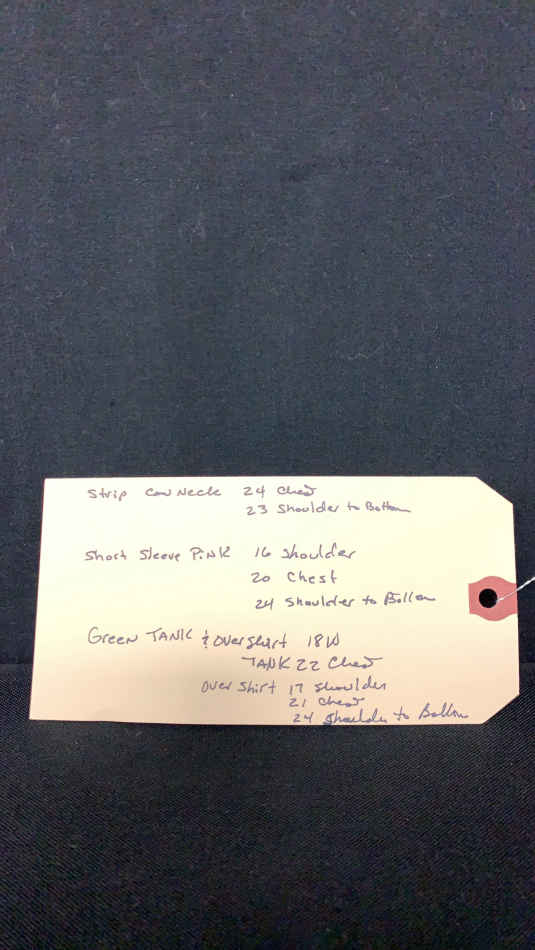 Strip Cow Neck 24 Chest
23 Shoulder to Bottom
Short Sleeve Pink 16 shoulder
20 Chest
24 Shoulder to Bottom
Green TANK & overshirt 18W
TANK 22 Chest
over Shirt 17 shoulder
21 Chest
24 shoulder to Bottom